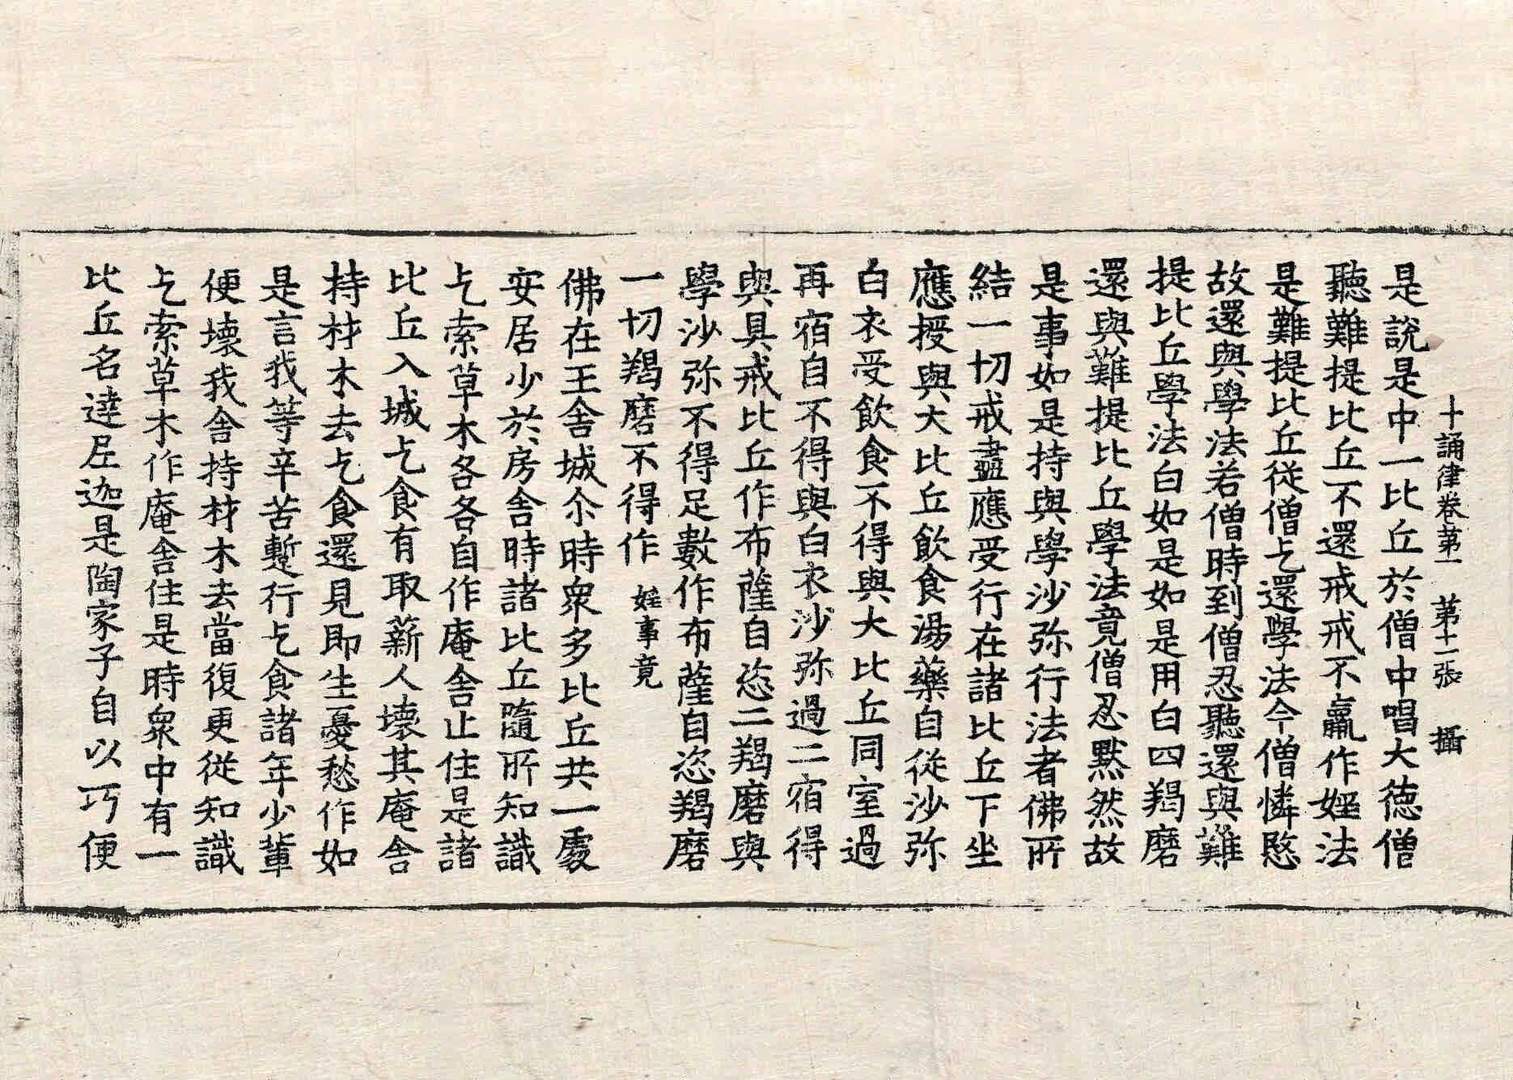 十誦律卷第一　第十一張　攝
是說是中一比丘於僧中唱大德僧
聽難提比丘不還戒戒不羸作婬法
是難提比丘從僧乞還學法今僧憐愍
故還與學法若僧時到僧忍聽還與難
提比丘學法白如是如是用白四羯磨
還與難提比丘學法竟僧忍默然故
是事如是持與學沙弥行法者佛所
結一切戒盡應受行在諸比丘下坐
應授與大比丘飲食湯藥自從沙弥
白衣受飲食不得與大比丘同室過
再宿自不得與白衣沙弥過二宿得
與具戒比丘作布薩自恣二羯磨與
學沙弥不得足數作布薩自恣羯磨
一切羯磨不得作 婬事竟
佛在王舍城尒時眾多比丘共一處
安居少於房舍時諸比丘隨所知識
乞索草木各各自作庵舍止住是諸
比丘入城乞食有取薪人壞其庵舍
持材木去乞食還見即生憂愁作如
是言我等辛苦蹔行乞食諸年少輩
便壞我舍持材木去當復更從知識
乞索草木作庵舍住是時眾中有一
比丘名達尼迦是陶家子自以巧便